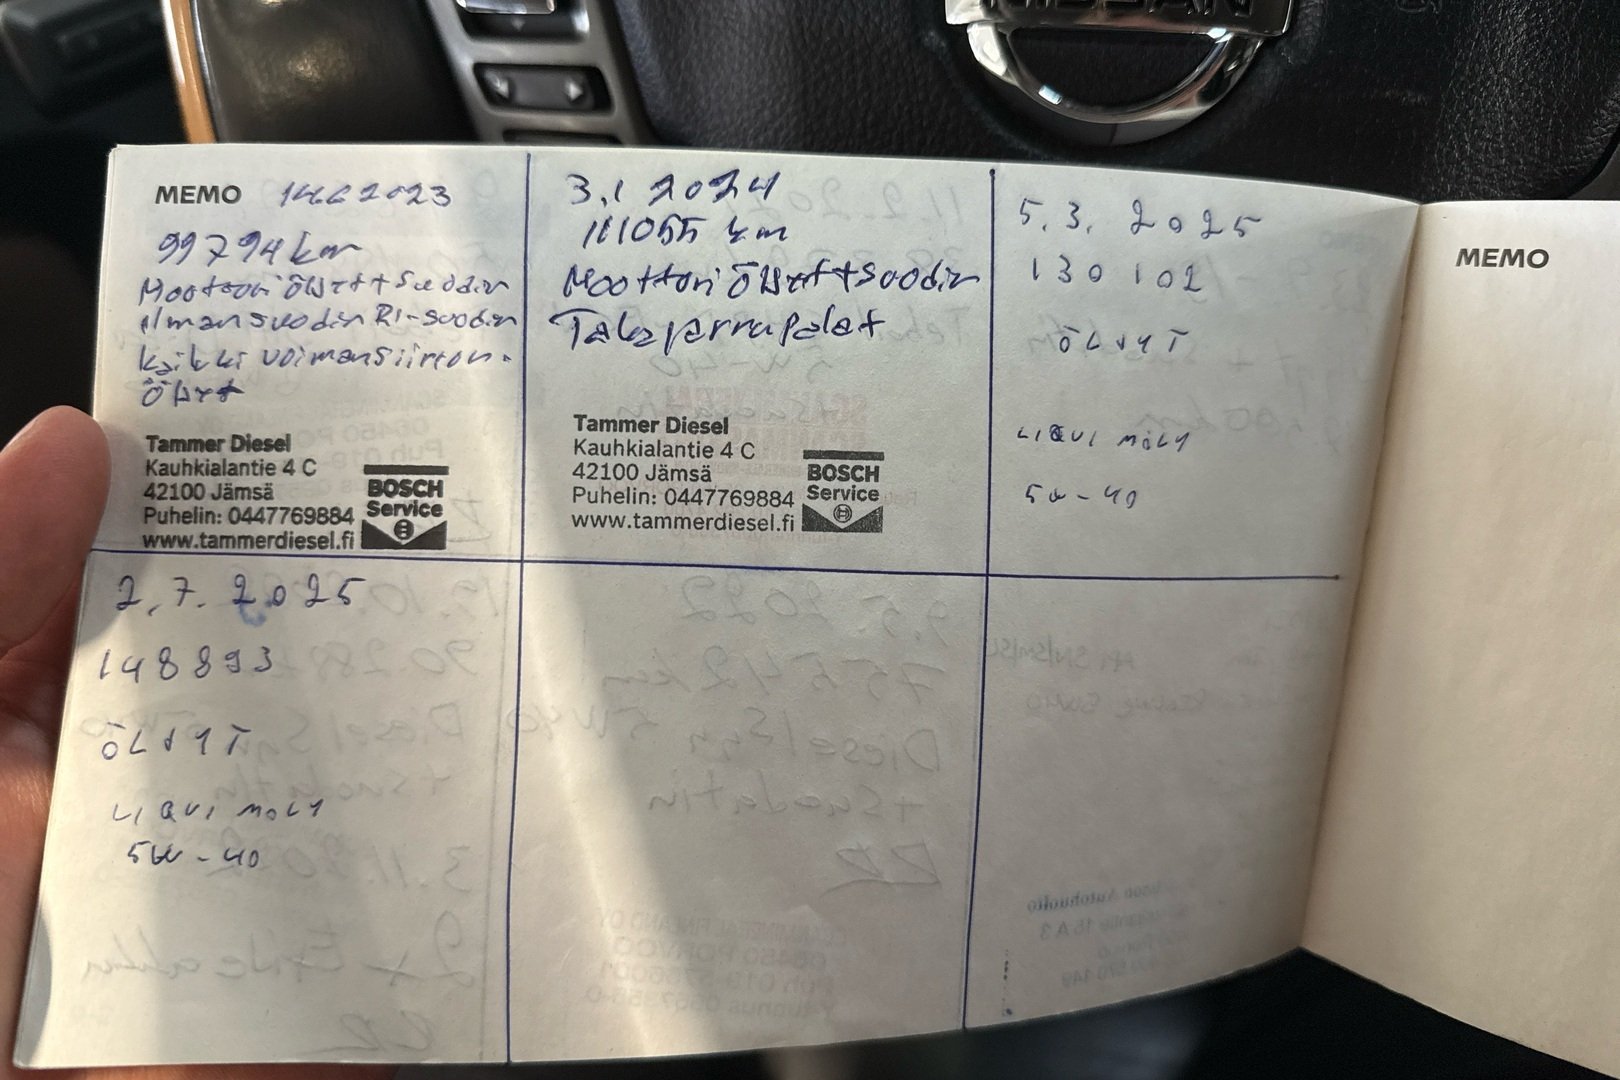 NISSAN
MEMO 14.6 2023
99794 km
Moottori Öljyt + Suodin
ilmansuodin RI-suodin
Kaikki voimansiirron-
Öljyt
Tammer Diesel
Kauhkialantie 4 C
42100 Jämsä
Puhelin: 0447769884
www.tammerdiesel.fi
BOSCH
Service
3.1 2024
111055 km
Moottori Öljyt + Suodin
Takajarrupalat
Tammer Diesel
Kauhkialantie 4 C
42100 Jämsä
Puhelin: 0447769884
www.tammerdiesel.fi
BOSCH
Service
5.3. 2025
130 102
ÖLJYT
LIQUI MOLY
5W-40
2.7. 2025
148893
ÖLJYT
LIQUI MOLY
5W-40
MEMO